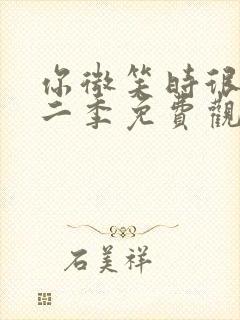 你微笑時很
二季免費觀
石美祥